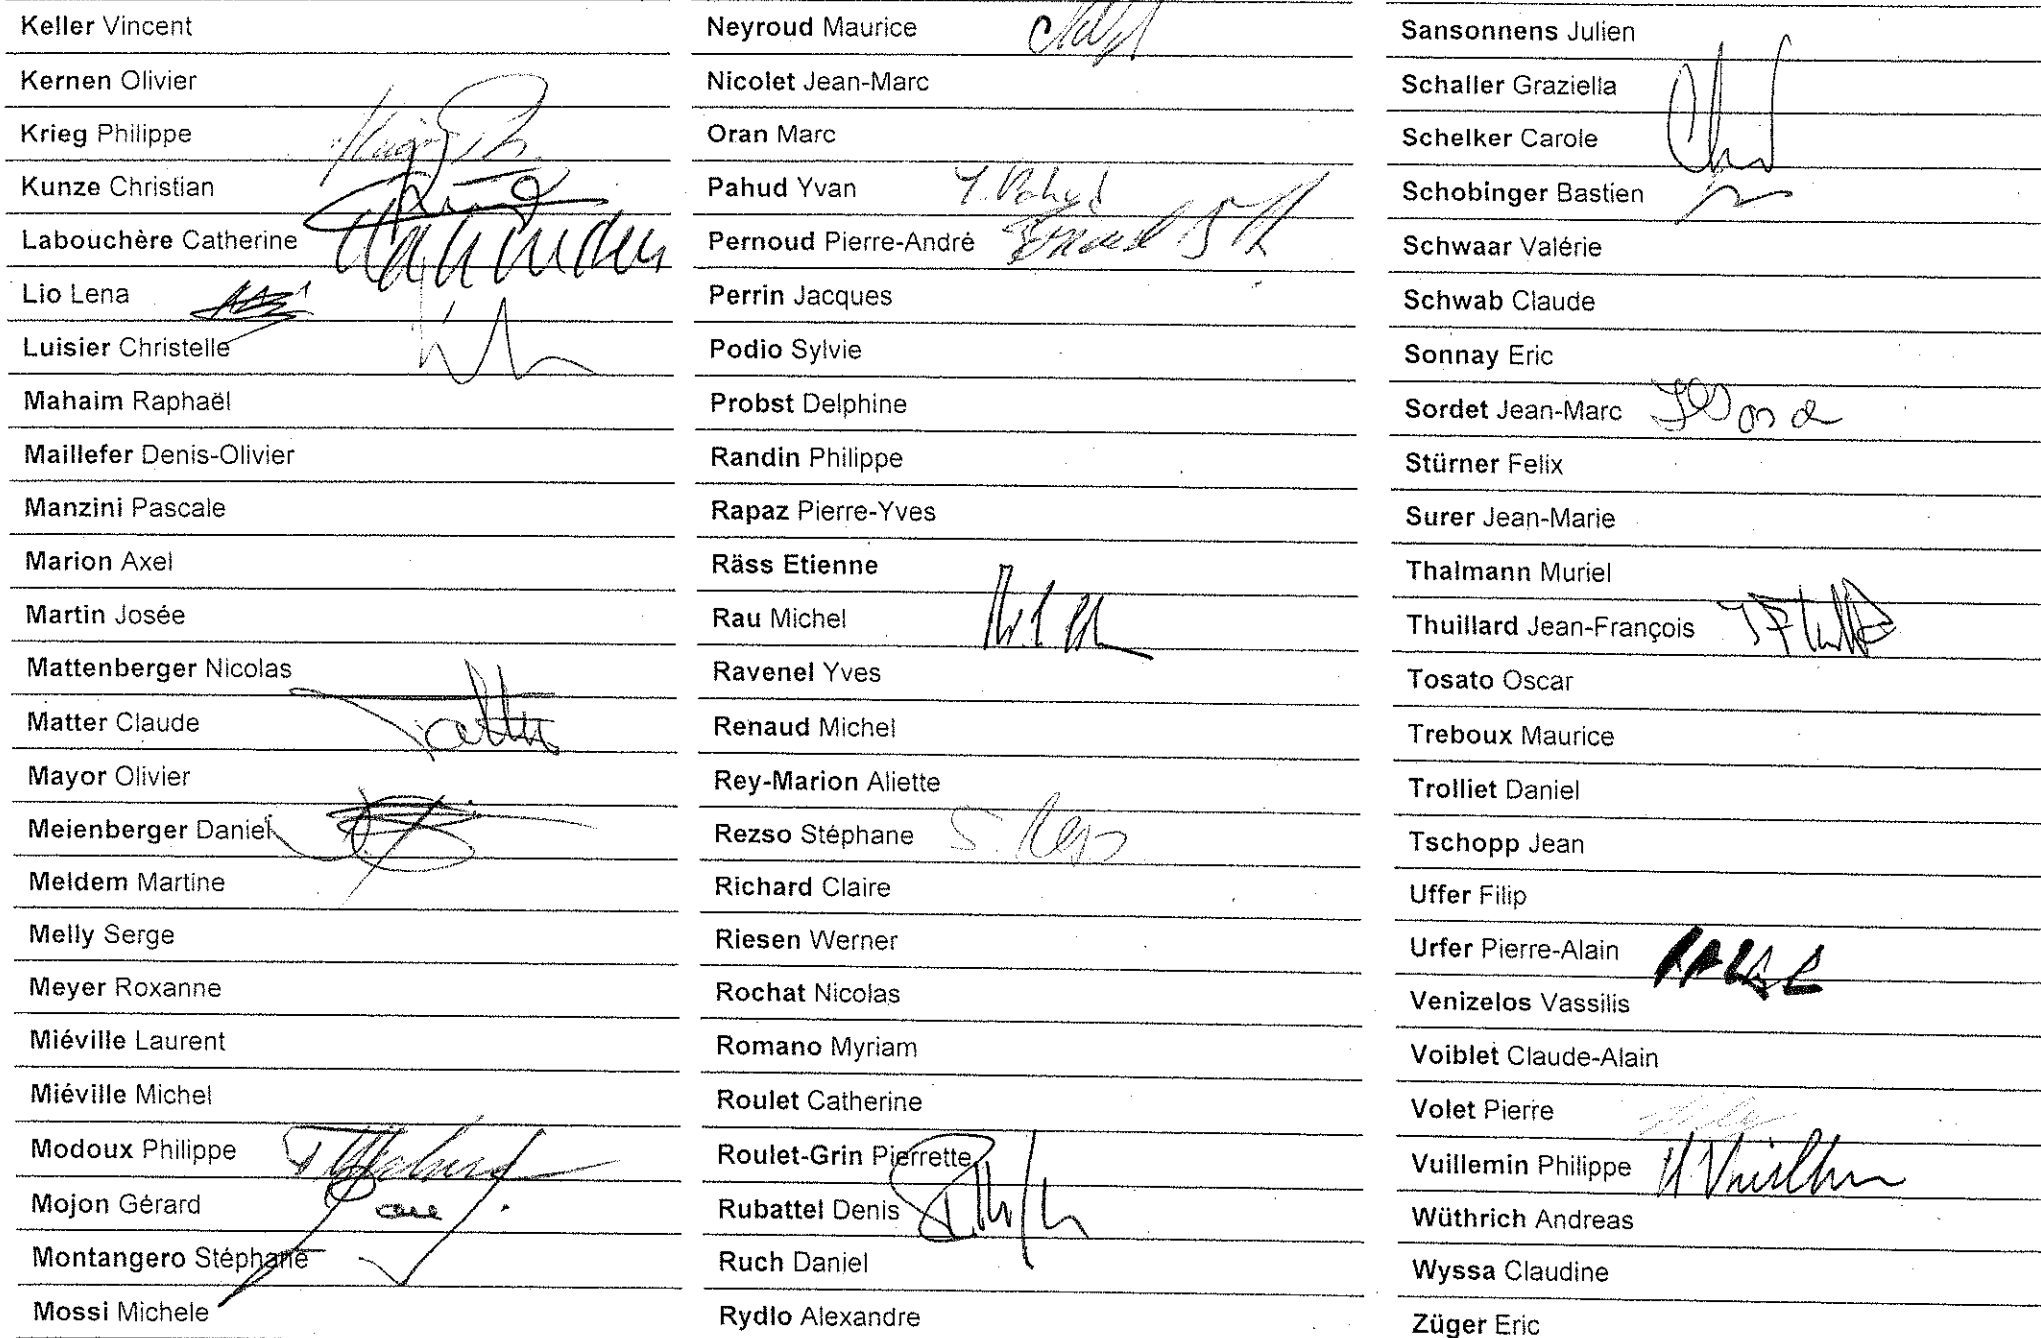 Keller Vincent
Kernen Olivier
Krieg Philippe
Kunze Christian
Labouchère Catherine
Lio Lena
Luisier Christelle
Mahaim Raphaël
Maillefer Denis-Olivier
Manzini Pascale
Marion Axel
Martin Josée
Mattenberger Nicolas
Matter Claude
Mayor Olivier
Meienberger Daniel
Meldem Martine
Melly Serge
Meyer Roxanne
Miéville Laurent
Miéville Michel
Modoux Philippe
Mojon Gérard
Montangero Stéphane
Mossi Michele
Neyroud Maurice
Nicolet Jean-Marc
Oran Marc
Pahud Yvan Y. Pahud
Pernoud Pierre-André
Perrin Jacques
Podio Sylvie
Probst Delphine
Randin Philippe
Rapaz Pierre-Yves
Räss Etienne
Rau Michel
Ravenel Yves
Renaud Michel
Rey-Marion Aliette
Rezso Stéphane
Richard Claire
Riesen Werner
Rochat Nicolas
Romano Myriam
Roulet Catherine
Roulet-Grin Pierrette
Rubattel Denis
Ruch Daniel
Rydlo Alexandre
Sansonnens Julien
Schaller Graziella
Schelker Carole
Schobinger Bastien
Schwaar Valérie
Schwab Claude
Sonnay Eric
Sordet Jean-Marc
Stürner Felix
Surer Jean-Marie
Thalmann Muriel
Thuillard Jean-François
Tosato Oscar
Treboux Maurice
Trolliet Daniel
Tschopp Jean
Uffer Filip
Urfer Pierre-Alain
Venizelos Vassilis
Voiblet Claude-Alain
Volet Pierre
Vuillemin Philippe
Wüthrich Andreas
Wyssa Claudine
Züger Eric